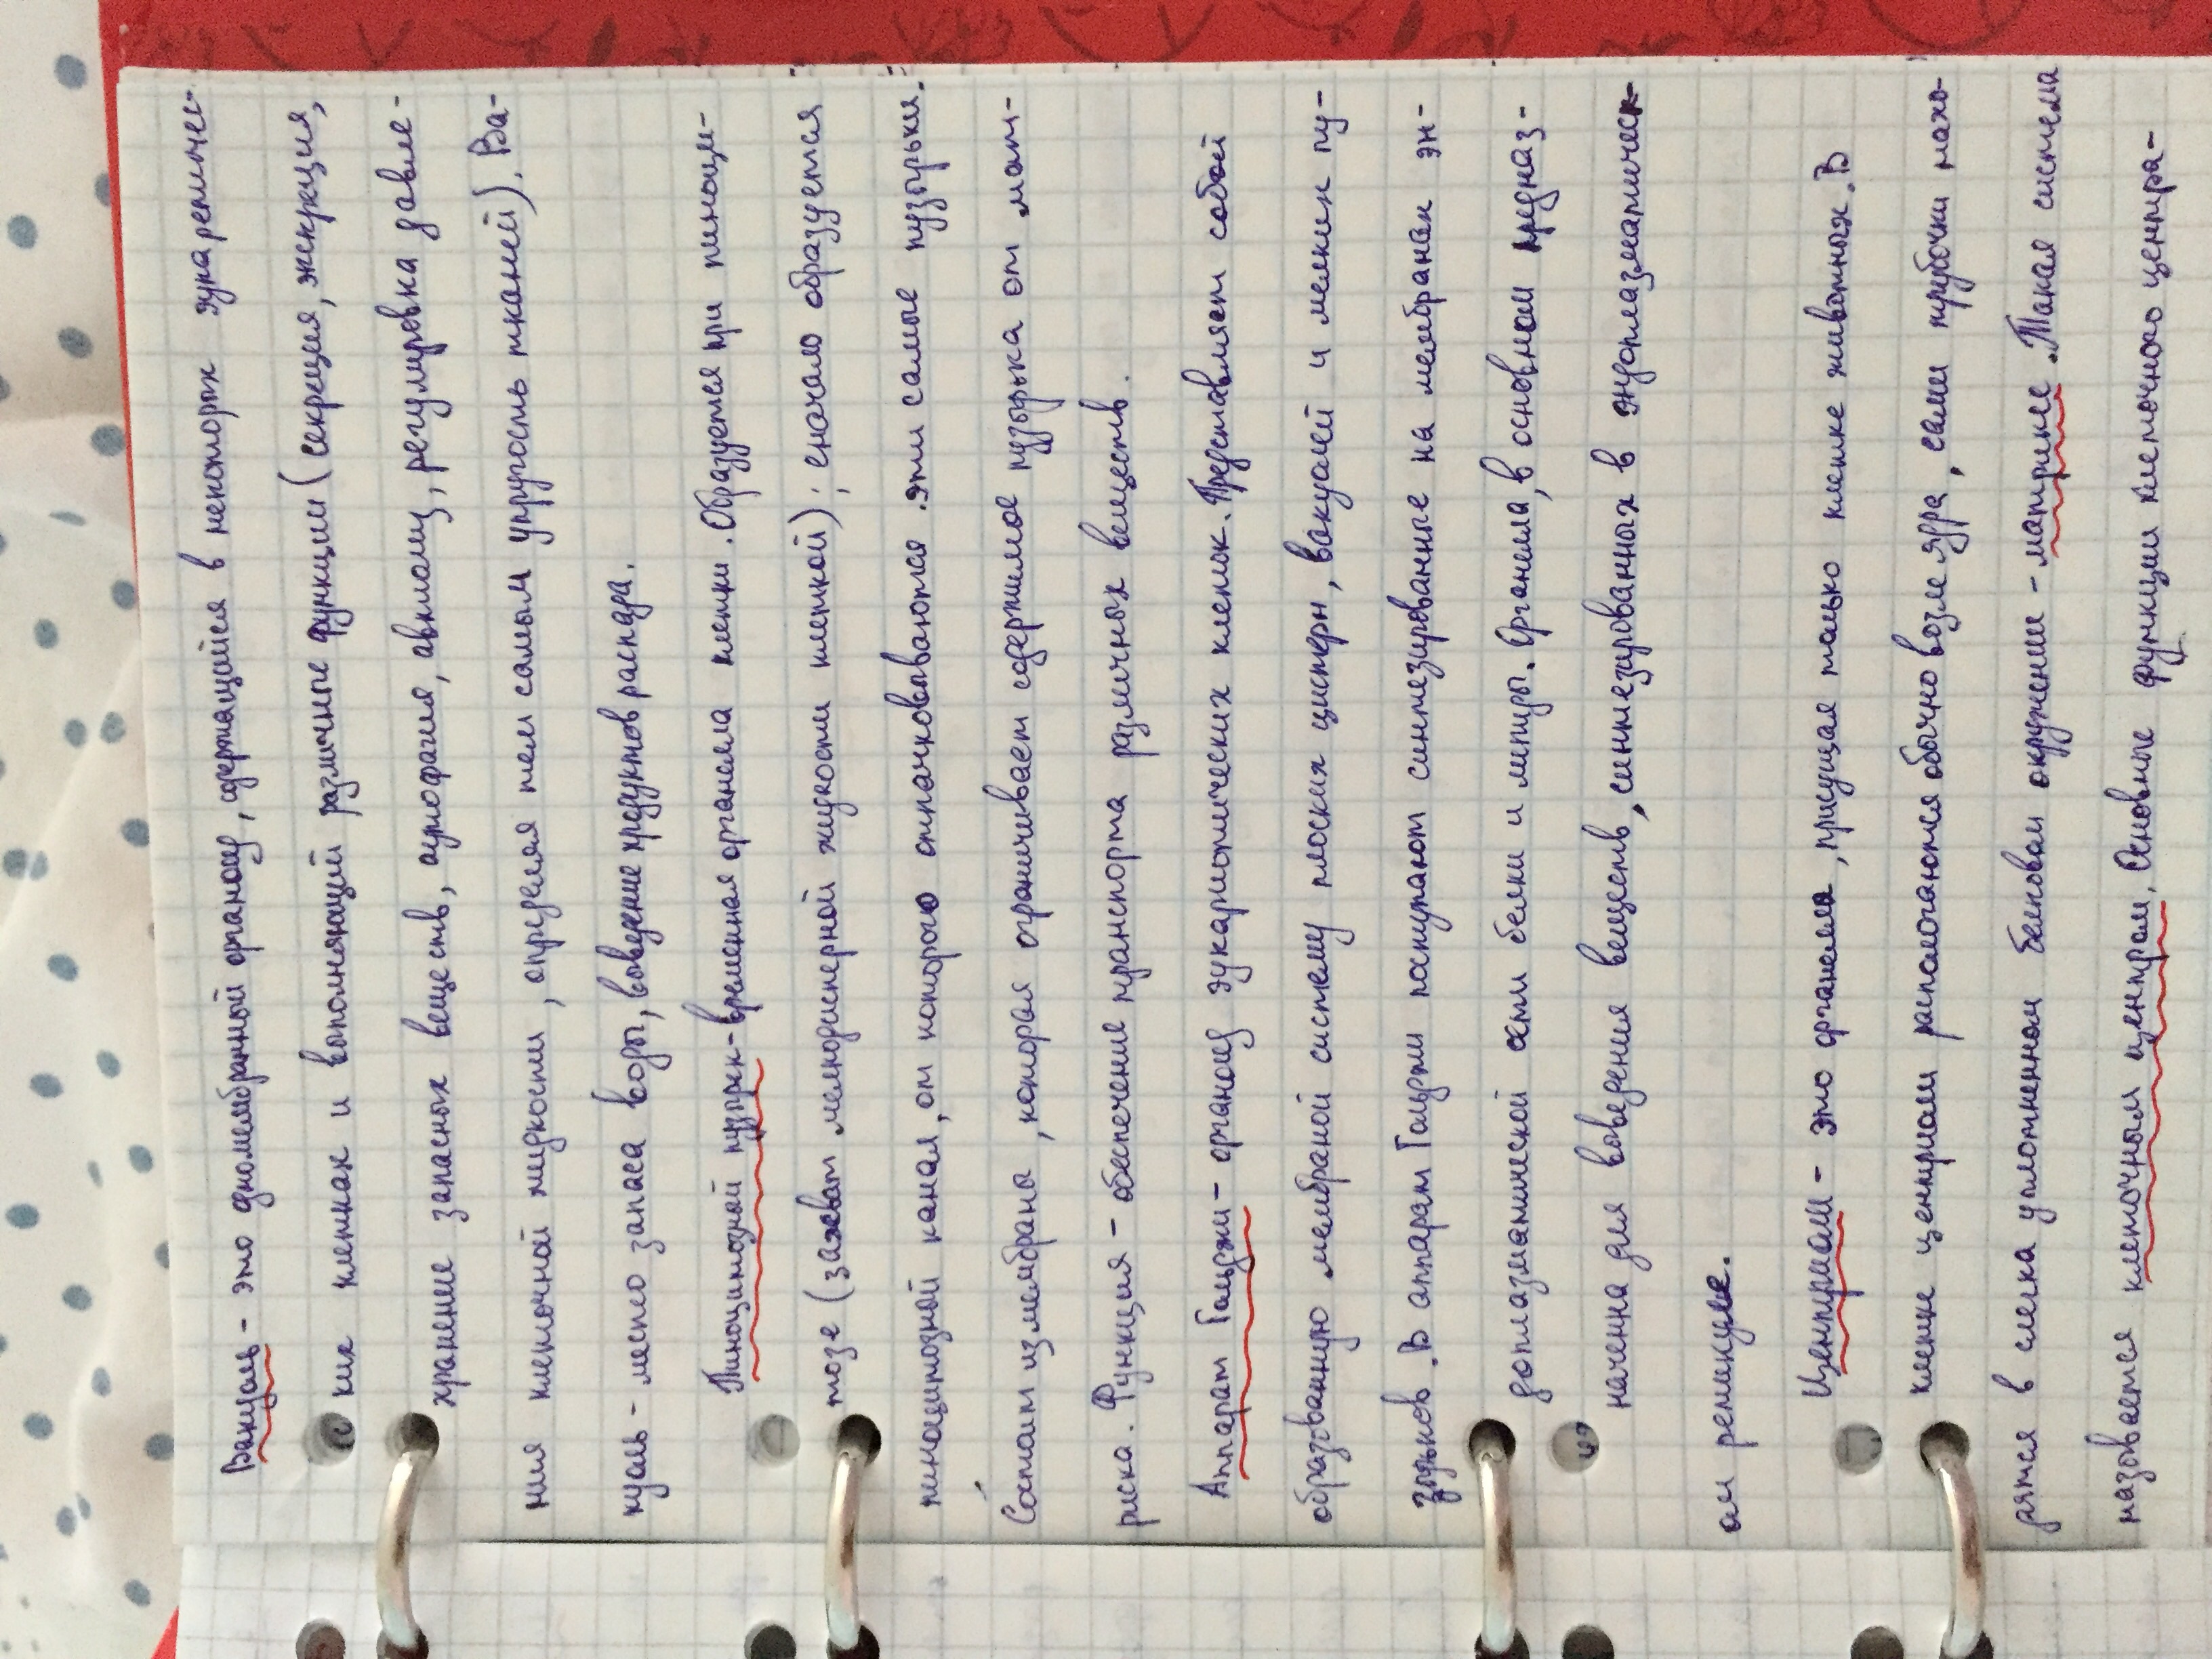 Вакуоль - это одномембранный органоид, содержащийся в некоторых эукариотичес-
ких клетках и выполняющий различные функции (секреция, экскреция,
хранение запасных веществ, аутофагия, автолиз, регулировка давле-
ния клеточной жидкости, определяя тем самым упругость тканей). Ва-
куоль - место запаса воды, выведение продуктов распада.
Пиноцитозной пузырек - временная органелла клетки. Образуется при пиноци-
тозе (захват мелкодисперной жидкости клеткой); сначало образуется
пиноцитозной канал, от которого отпочковываются эти самые пузырьки.
Состоит из мембрана, которая ограничивает содержимое пузырька от мат-
рикса. Функция - обеспечение транспорта различных веществ.
Аппарат Гольджи - органоид эукариотических клеток. Представляет собой
образованную мембраной систему плоских цистерн, вакуолей и мелких пу-
зырьков. В аппарат Гольджи поступают синтезированные на мембранах эн-
доплазматической сети белки и липиды. Органелла, в основном предназ-
наченна для выведения веществ, синтезированных в эндоплазматическ-
ом ретикуле.
Центриоли - это органелла, присущая только клетке животных. В
клетке центриоли располагаются обычно возле ядра, сами трубочки нахо-
дятся в слегка уплотненном белковом окружении - матриксе. Такая система
называется клеточным центром. Основные функции клеточного центра-